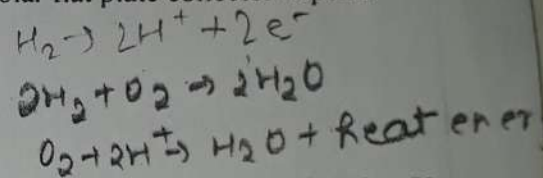 H₂ → 2H⁺ + 2e⁻
2H₂ + O₂ → 2H₂O
O₂ + 2H⁺ → H₂O + heat ener